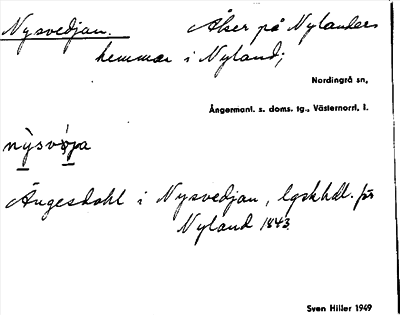 Nysvedjan. Åker på Nylanders
hemman i Nyland;
Nordingrå sn,
Ångermanl. s. doms. tg., Västernorrl. l.
nysvöja
Ängesdahl i Nysvedjan, lgskhdl. för
Nyland 1843.
Sven Hiller 1949